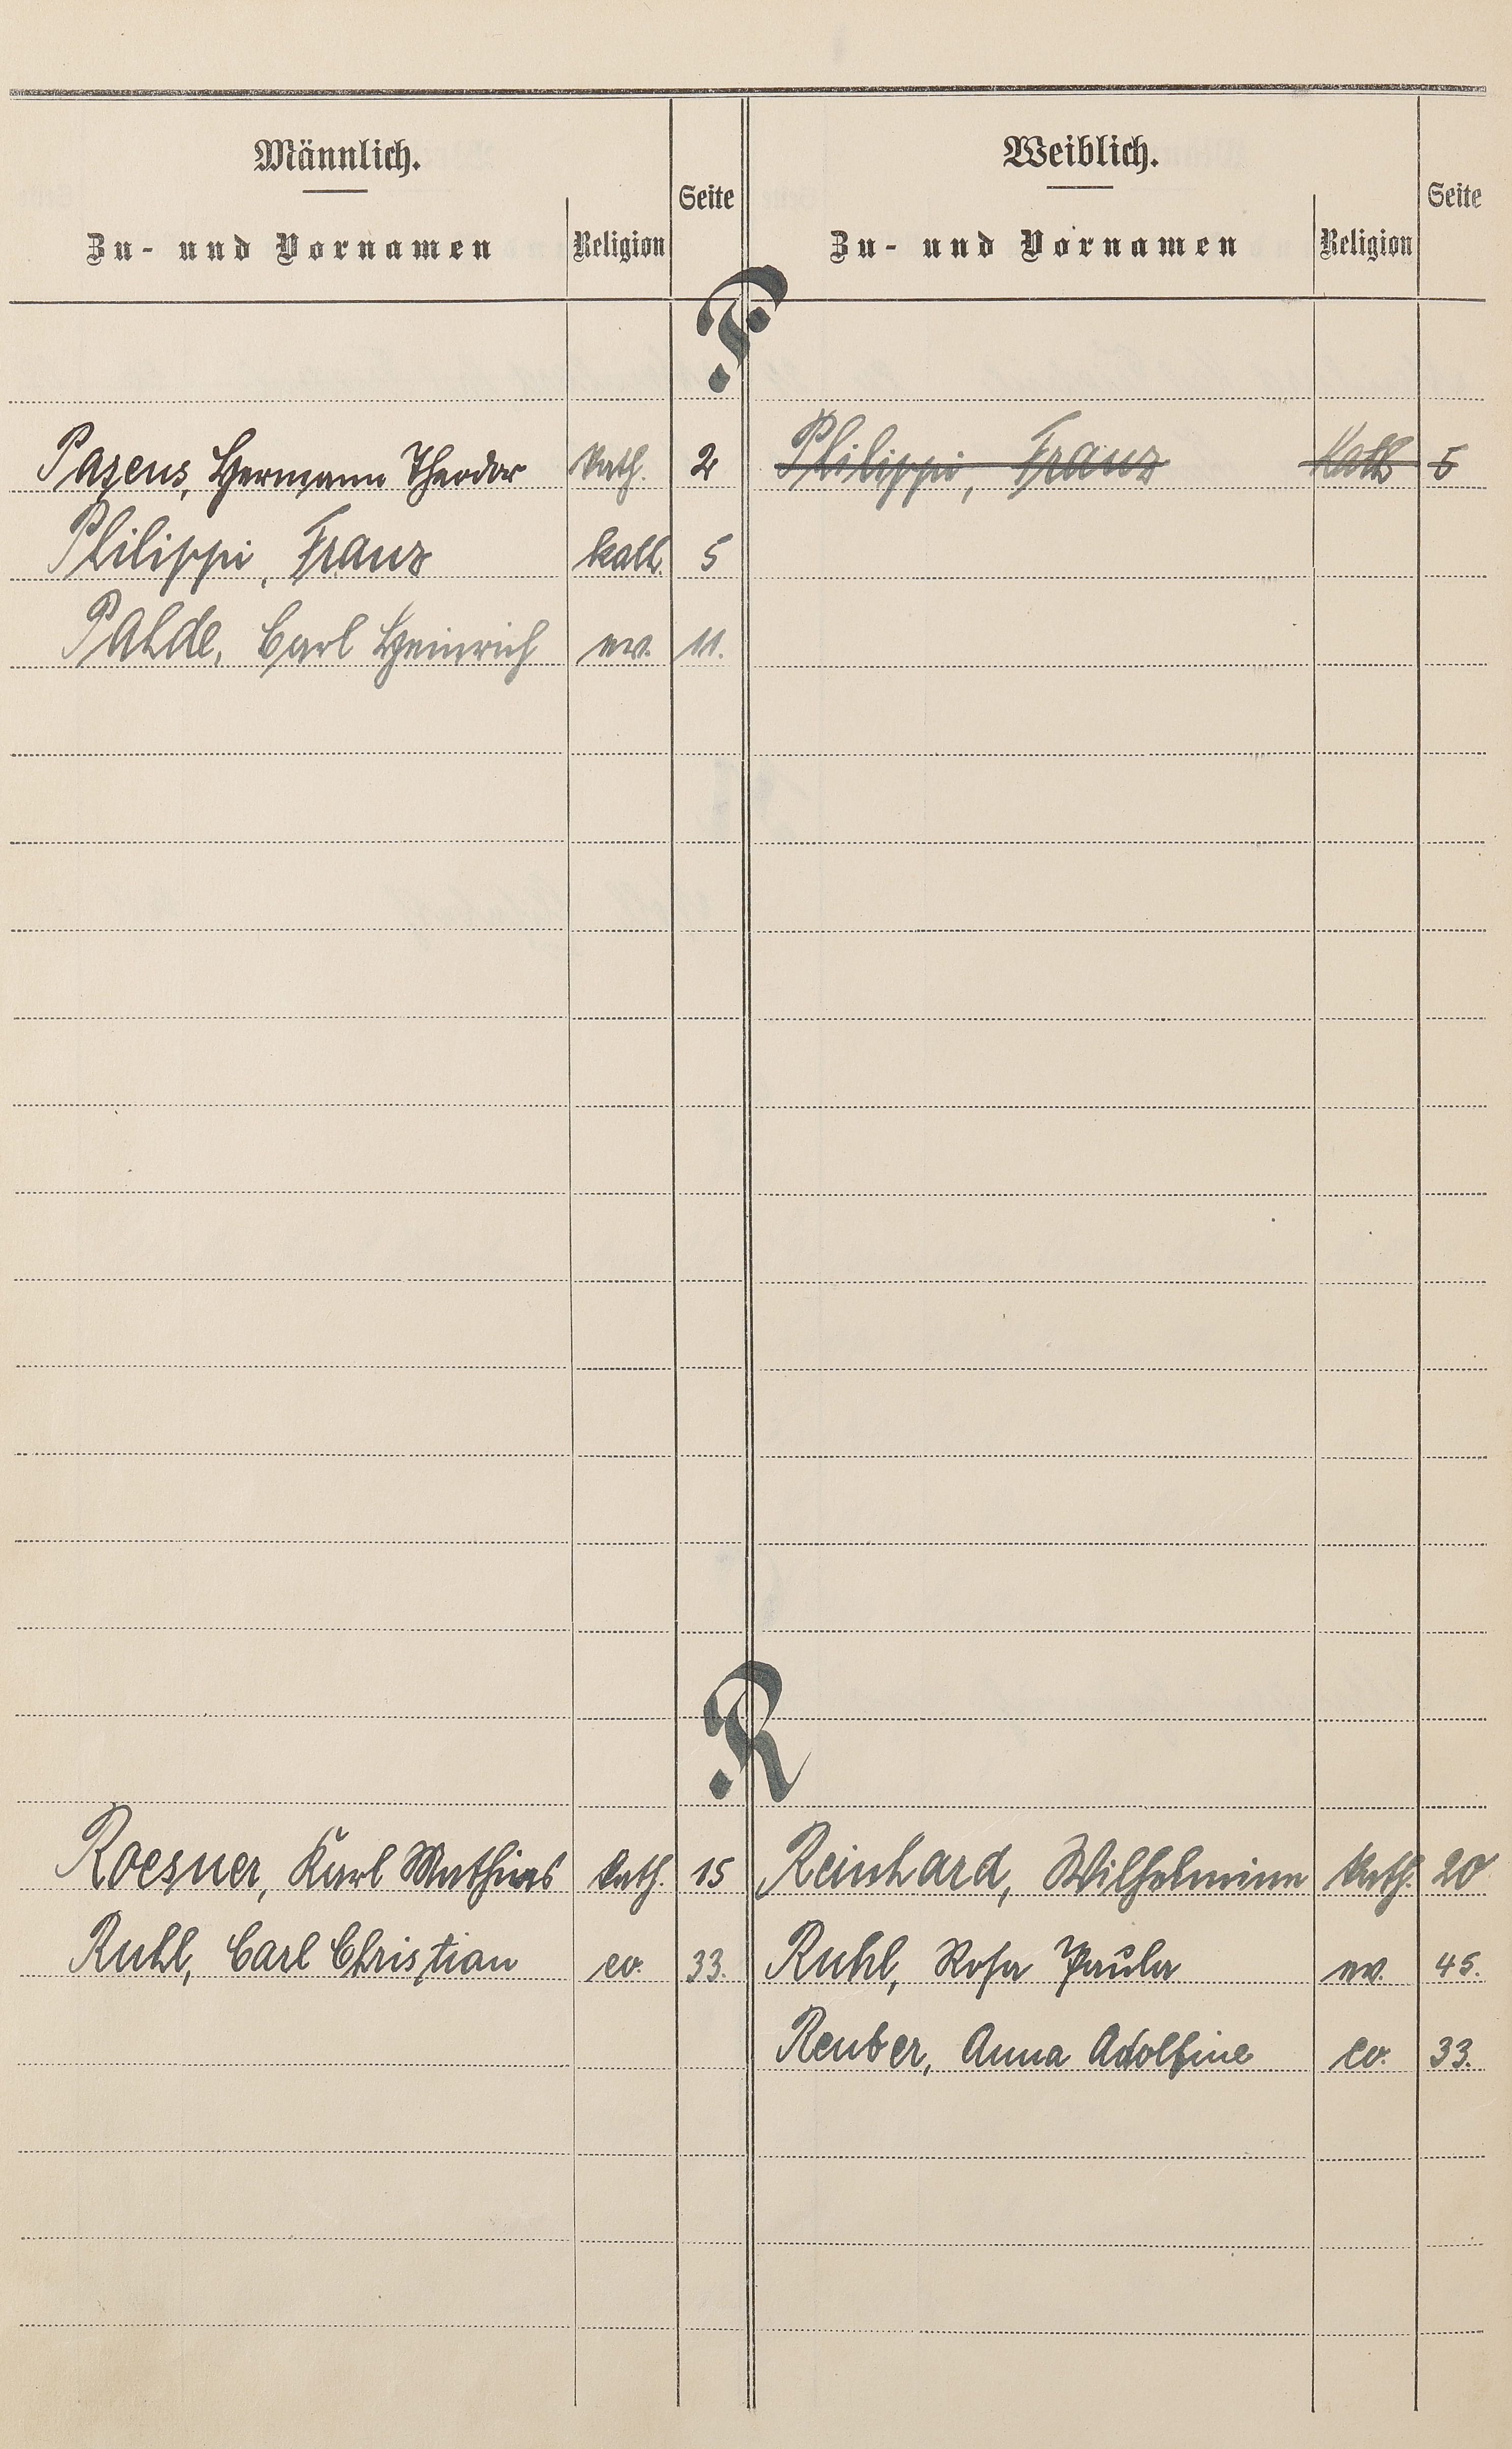 Männlich.
Zu- und Vornamen Religion Seite
Weiblich.
Zu- und Vornamen Religion Seite
P
Pasens, Hermann Theodor kath. 2 Philippi, Franz Kath 5
Philippi, Franz kath. 5
Pahde, Carl Heinrich ev. 11.
R
Roesner, Karl Mathias kath. 15 Reinhard, Wilhelmine kath. 20
Ruhl, Carl Christian ev. 33. Ruhl, Rosa Paula ev. 45.
Reuber, Anna Adolfine ev. 33.